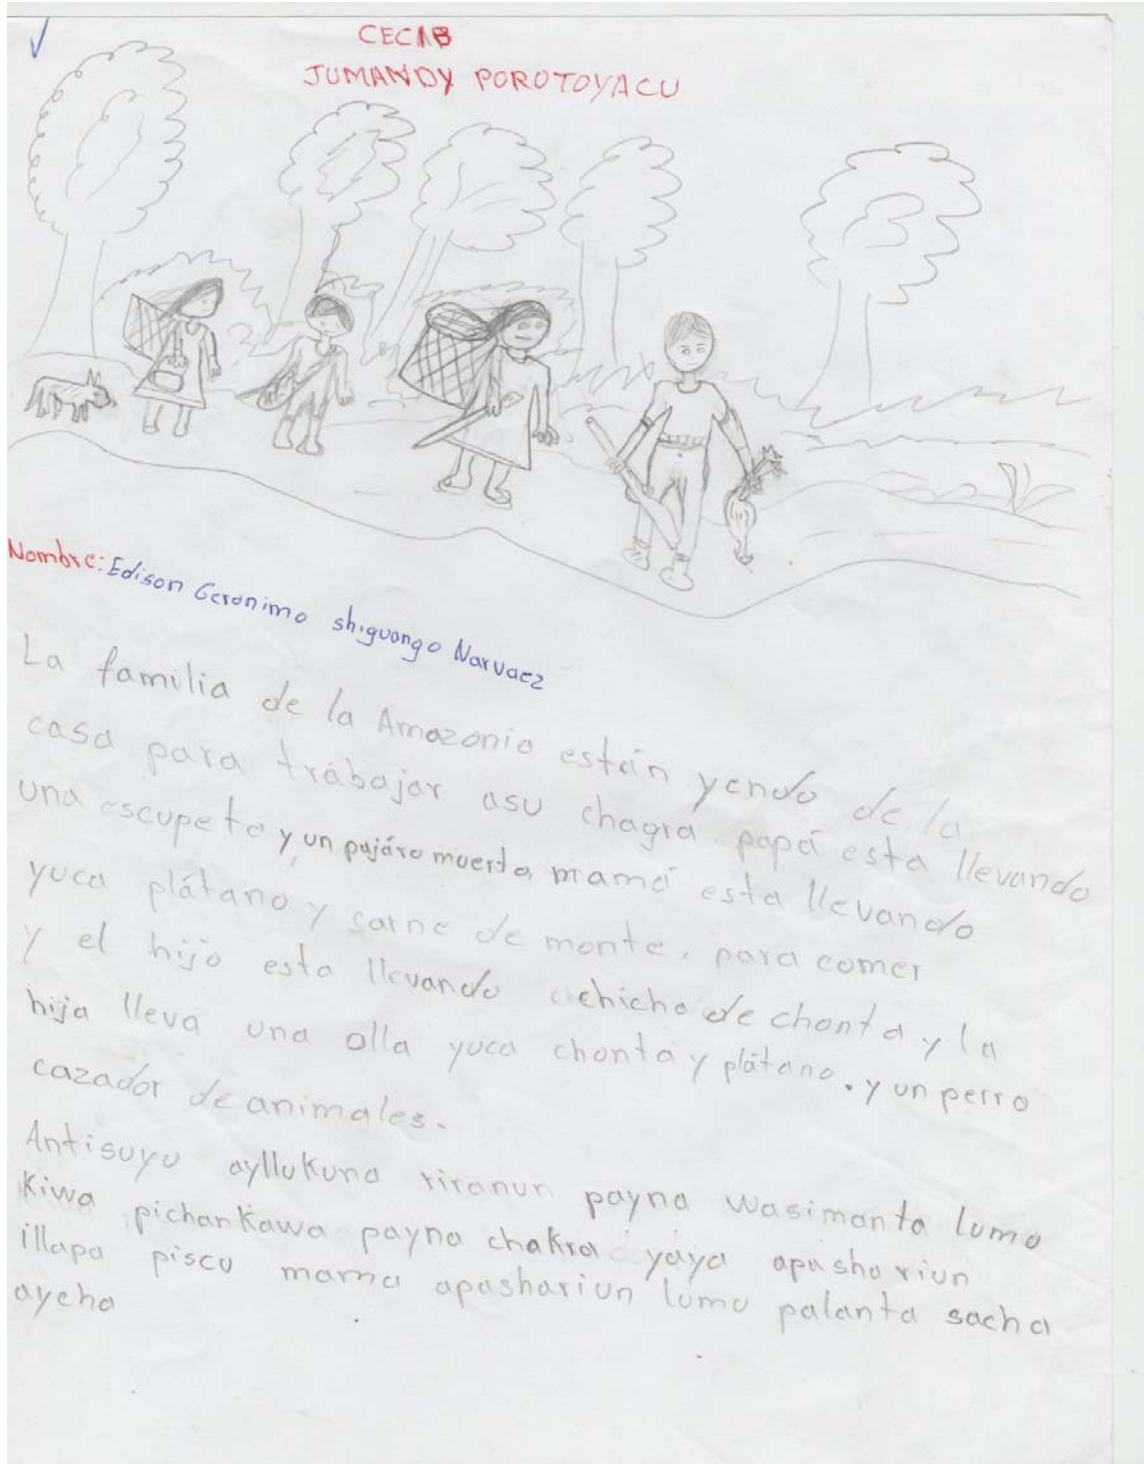 CECIB
JUMANDY POROTOYACU
Nombre: Edison Geronimo shiguango Narvaez
La familia de la Amazonia están yendo de la
casa para trabajar asu chagra papá esta llevando
una escupeta y un pajáro muerto, mamá esta llevando
yuca plátano y carne de monte, para comer
y el hijo esta llevando chicha de chonta y la
hija lleva una olla yuca chonta y plátano. y un perro
cazador de animales.
Antisuyu ayllukuna riranun payna wasimanta lumu
kiwa pichankawa payna chakra yaya apashariun
illapa piscu mama apashariun lumu palanta sacha
aycha